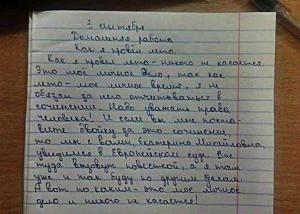 1 сентября
Домашняя работа
Как я провёл лето.
Как я провёл лето - никого не касается.
Это моё личное дело, так как
лето - моё личное время, я не
обязан за него отчитываться в
сочинении. Надо уважать права
человека! И если вы мне поста
вите двойку за это сочинение,
то мы с вами, Екатерина Михайловна,
увидимся в Европейском суде. Вас
туда вызовут повесткой, а я там
уже и так буду по другим делам.
А вот по каким - это моё личное
дело и никого не касается!